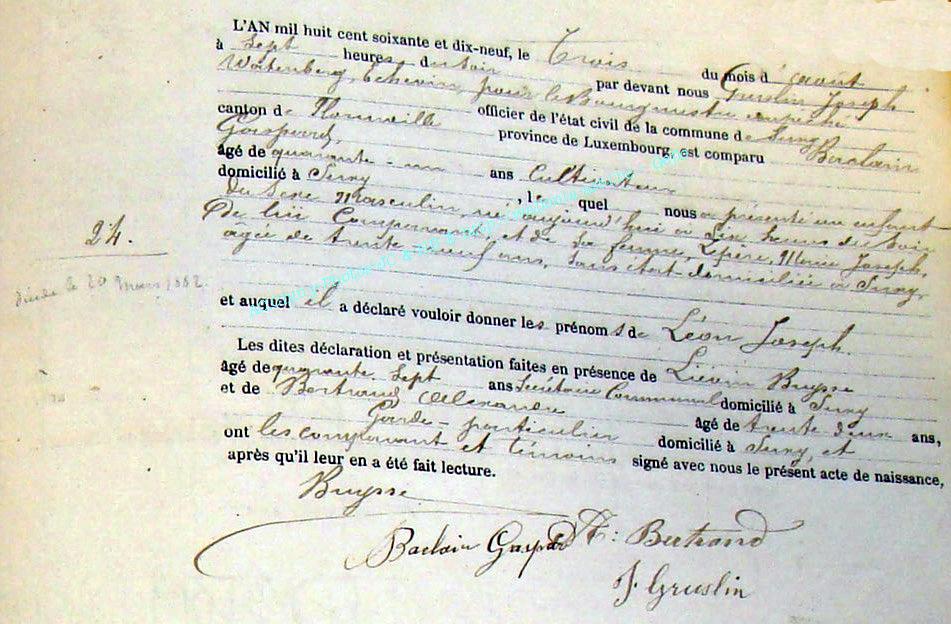 L'AN mil huit cent soixante et dix-neuf, le Trois du mois d'avout
à Sept heures du soir par devant nous Gruslin Joseph
Echevin, pour le Bourgmestre empêché
officier de l'état civil de la commune de Suxy
canton de Florenville province de Luxembourg, est comparu Baclain
Gaspard,
âgé de quarante-un ans Cultivateur
domicilié à Suxy, lequel nous a présenté un enfant
du Sexe Masculin, né aujourd'hui à dix heures du soir
De lui Comparant, et de sa femme, Lefèvre, Marie Joseph,
agée de trente-neuf ans, sans état domiciliée à Suxy,
24.
décédé le 20 Mars 1882
et auquel il a déclaré vouloir donner les prénoms de Léon Joseph.
Les dites déclaration et présentation faites en présence de Liévin Buysse
âgé de quarante-sept ans Secrétaire Communal domicilié à Suxy
et de Bertrand Alexandre âgé de trente deux ans,
Garde-particulier domicilié à Suxy, et
ont les comparant et témoins signé avec nous le présent acte de naissance,
après qu'il leur en a été fait lecture.
Buysse
Baclain Gaspard A: Bertrand
J. Gruslin